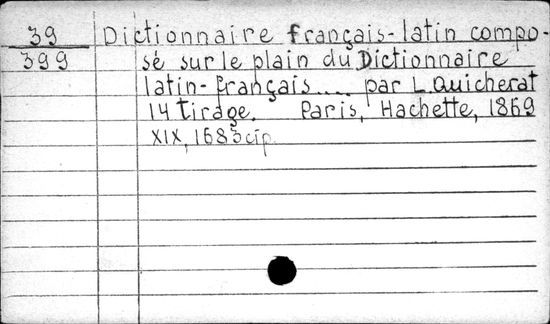 39 Dictionnaire français-latin compo-
399 sé sur le plain du Dictionnaire
latin-français .... par L. Quicherat
14 tirage. Paris, Hachette, 1869
XIX, 1683 cтp.